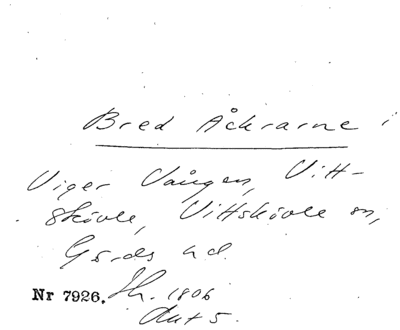 Bred Åckrarne i
Viger Vången, Vitt-
skövle, Vittskövle sn,
Gärds hd.
Nr 7926. Sk. 1806
Akt 5.